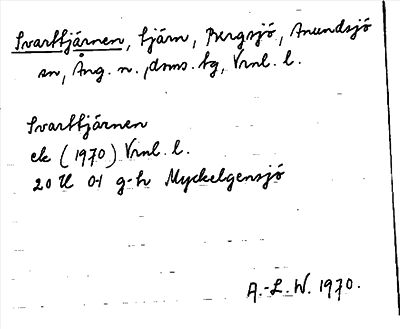 Svarttjärnen, tjärn, Bergsjö, Anundsjö
sn, Ång. n. doms. tg, Vrnl. l.
Svarttjärnen
ek (1970) Vrnl. l.
20 H 0-1 g-h Myckelgensjö
A.-L. W. 1970.